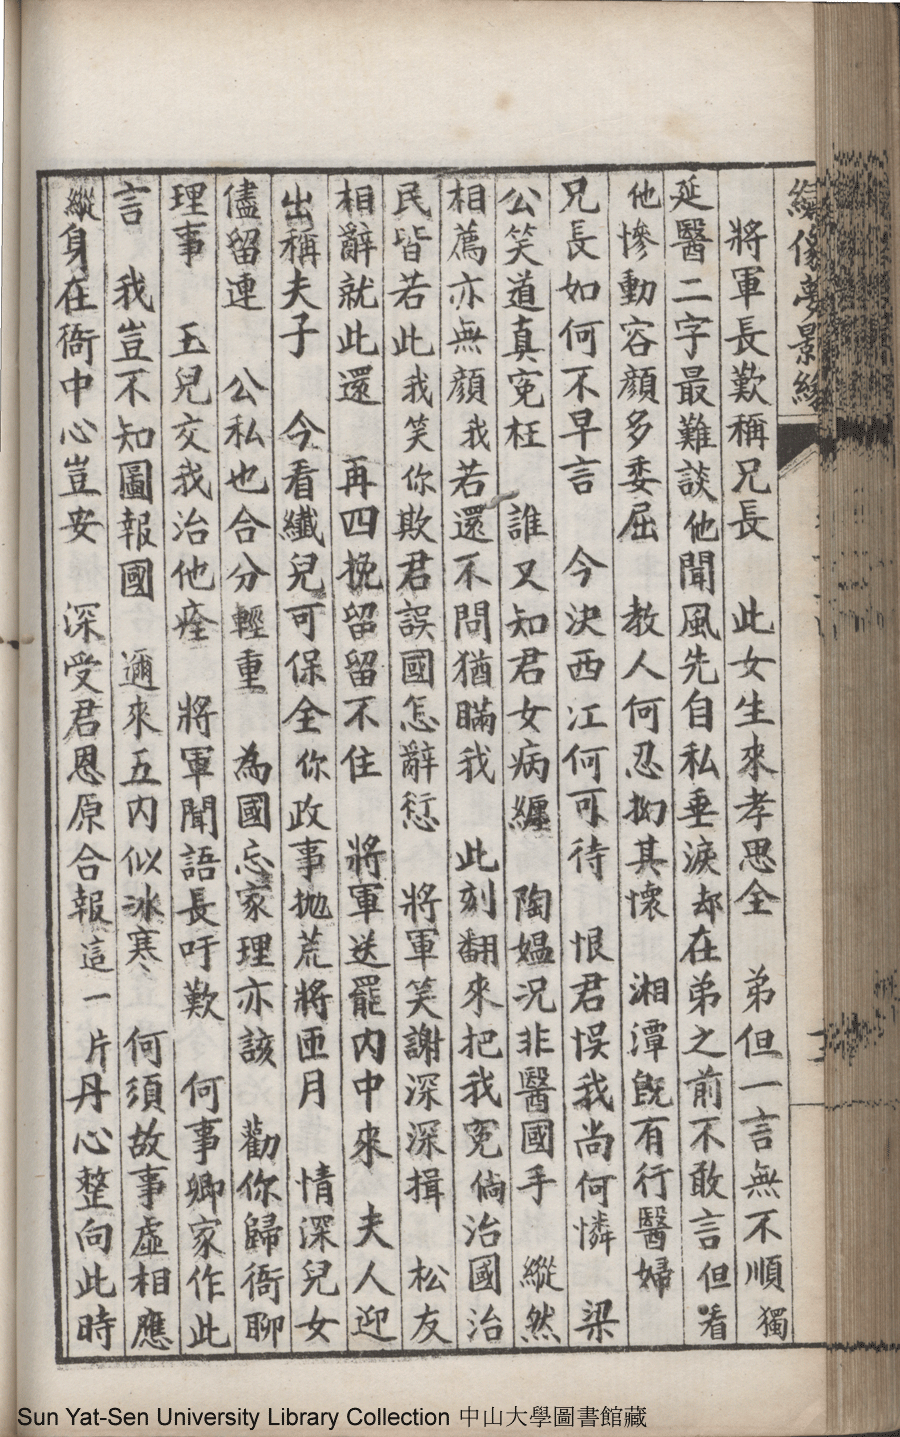 繡像夢影緣
將軍長歎稱兄長　此女生來孝思全　弟但一言無不順　獨
延醫二字最難談他聞風先自私垂淚却在弟之前不敢言但看
他慘動容顏多委屈　教人何忍拗其懷　湘潭旣有行醫婦
兄長如何不早言　今決西江何可待　恨君悞我尚何憐　梁
公笑道真寃枉　誰又知君女病纏　陶媼況非醫國手　縱然
相薦亦無顏我若還不問猶瞞我　此刻翻來把我寃倘治國治
民皆若此我笑你欺君誤國怎辭愆　將軍笑謝深深揖　松友
相辭就此還　再四挽留留不住　將軍送罷內中來　夫人迎
出稱夫子　今看纖兒可保全你政事拋荒將匝月　情深兒女
儘留連　公私也合分輕重　為國忘家理亦該　勸你歸衙聊
理事　玉兒交我治他痊　將軍聞語長吁歎　何事卿家作此
言　我豈不知圖報國　邇來五內似冰寒　何須故事虛相應
縱身在衙中心豈安　深受君恩原合報這一片丹心整向此時
Sun Yat-Sen University Library Collection 中山大學圖書館藏